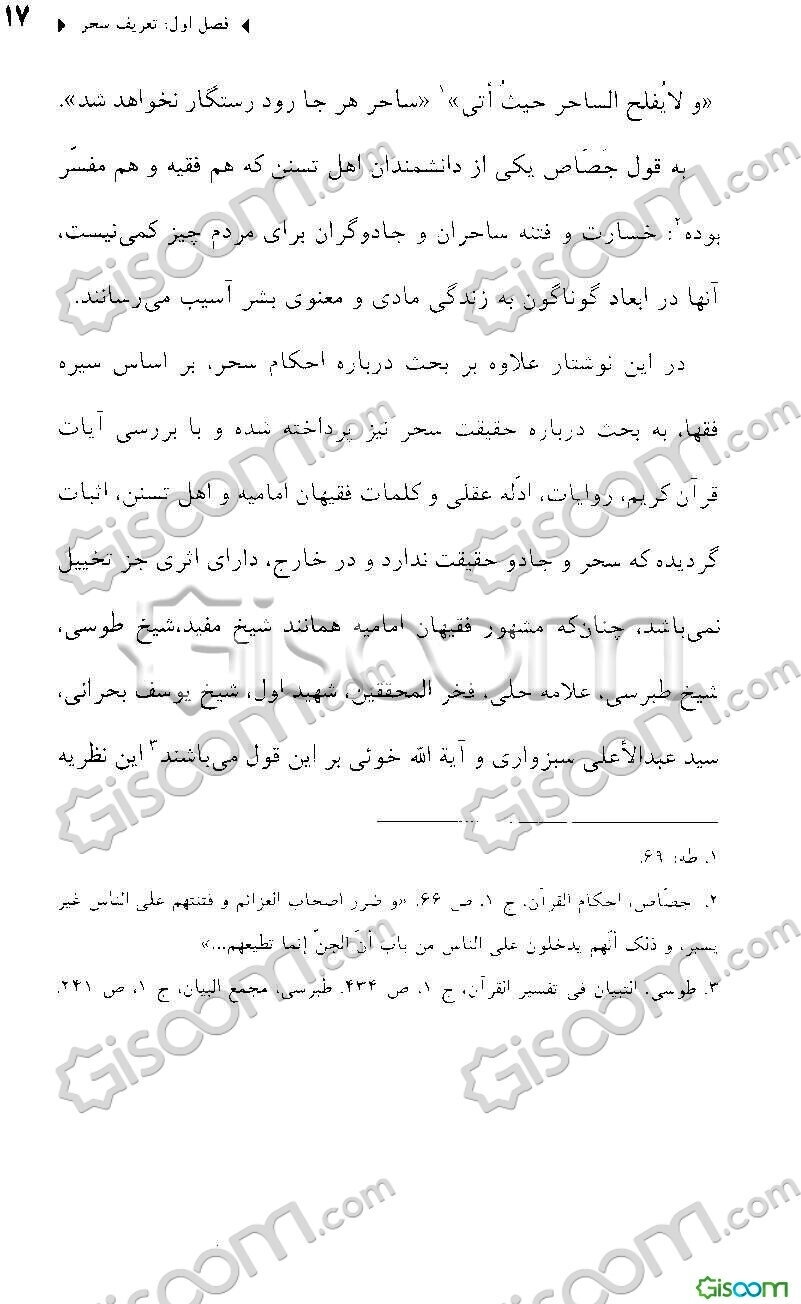 ۱۷
فصل اول: تعریف سحر
«و لایُفلح الساحر حیثُ أتی»۱ «ساحر هر جا رود رستگار نخواهد شد».
به قول جَصّاص یکی از دانشمندان اهل تسنن که هم فقیه و هم مفسّر
بوده۲: خسارت و فتنه ساحران و جادوگران برای مردم چیز کمی‌نیست،
آنها در ابعاد گوناگون به زندگی مادی و معنوی بشر آسیب می‌رسانند.
در این نوشتار علاوه بر بحث درباره احکام سحر، بر اساس سیره
فقها، به بحث درباره حقیقت سحر نیز پرداخته شده و با بررسی آیات
قرآن کریم، روایات، ادّله عقلی و کلمات فقیهان امامیه و اهل تسنن، اثبات
گردیده که سحر و جادو حقیقت ندارد و در خارج، دارای اثری جز تخییل
نمی‌باشد، چنان‌که مشهور فقیهان امامیه همانند شیخ مفید،شیخ طوسی،
شیخ طبرسی، علامه حلی، فخر المحققین، شهید اول، شیخ یوسف بحرانی،
سید عبدالأعلی سبزواری و آیة الله خوئی بر این قول می‌باشند۳ این نظریه
۱. طه: ۶۹.
۲. جصّاص، احکام القرآن، ج ۱، ص ۶۶. «و ضرر اصحاب العزائم و فتنتهم علی الناس غیر
یسیر، و ذلک أنّهم یدخلون علی الناس من باب أنّ الجنّ إنما تطیعهم...»
۳. طوسی، التبیان فی تفسیر القرآن، ج ۱، ص ۴۳۴. طبرسی، مجمع البیان، ج ۱، ص ۲۴۱.
Giscom.com
Giscom
Gisoom